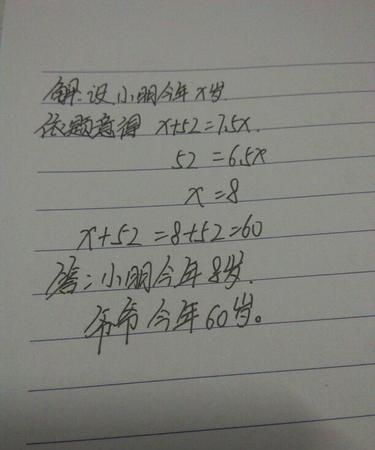 解:设小明今年x岁.
依题意得 x+52=7.5x.
52=6.5x
x=8
x+52=8+52=60
答:小明今年8岁.
爷爷今年60岁。